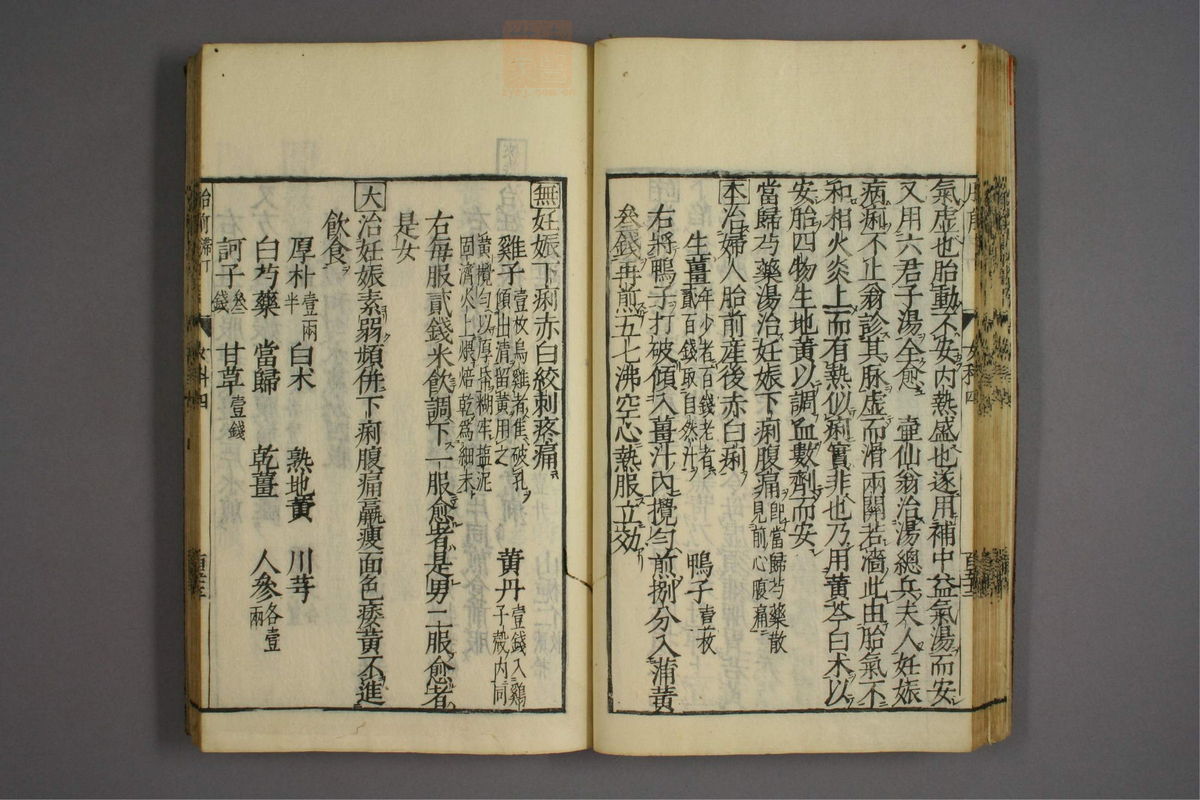 氣虛也胎動不安内熱盛也遂用補中益氣湯而安
又用六君子湯全愈　壺仙翁治湯總兵夫人妊娠
病痢不止翁診其脉虛而滑兩關若濇此由胎氣不
和相火炎上而有熱似痢實非也乃用黄芩白术以
安胎四物生地黄以調血數劑而安
當歸芍藥湯治妊娠下痢腹痛即當歸芍藥散見前心腹痛
本治婦人胎前産後赤白痢
生薑年少者百錢老者貳百錢取自然汁　鴨子壹枚
右將鴨子打破傾入薑汁内攪勻煎捌分入蒲黄
叄錢再煎五七沸空心熱服立効
無妊娠下痢赤白絞刺疼痛
雞子壹枚烏雞者佳破孔傾出清留黄用之　黄丹壹錢入鷄子殻内同
黄攪勻以厚紙糊牢塩泥固濟火上煨焙乾爲細末
右每服貳錢米飲調下一服愈者是男二服愈者
是女
大治妊娠素弱頻併下痢腹痛羸瘦面色痿黄不進
飲食
厚朴壹兩半　白术　熟地黄　川芎
白芍藥　當歸　乾薑　人參各壹兩
訶子叄錢　甘草壹錢
女科四